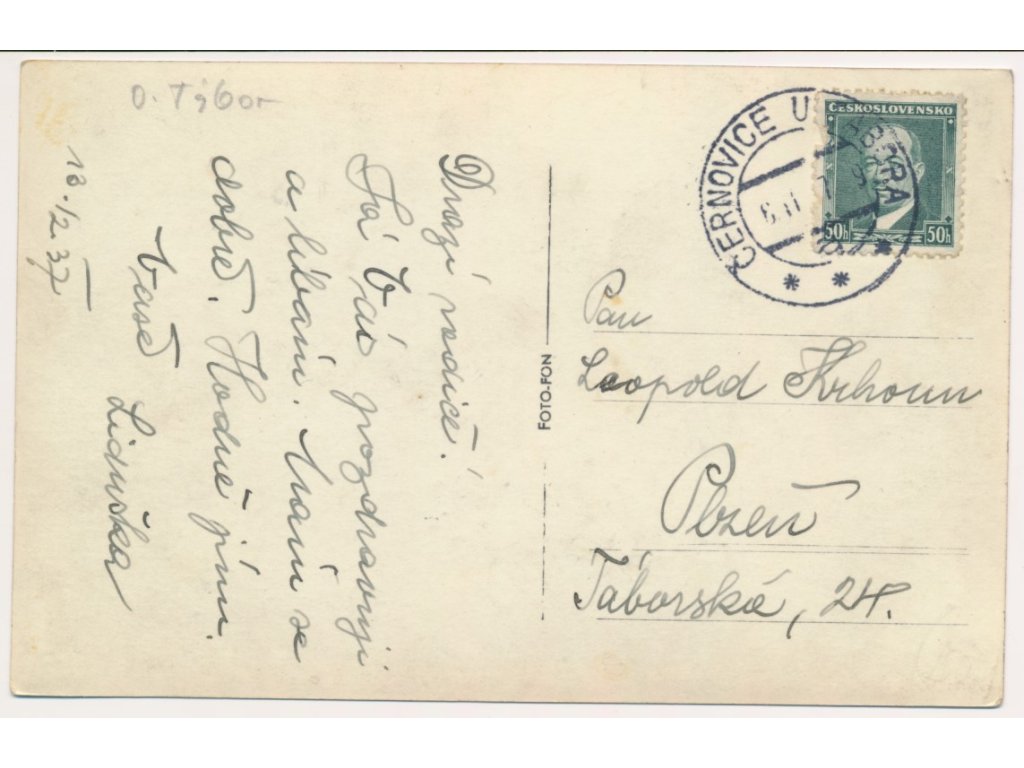 O. Tábor
Drazí rodiče!
Já Vás pozdravuji
a líbám. Mám se
dobře. Hodně jím.
Vaše
Liduška
13.12.37
FOTO-FON
ČERNOVICE U TÁBORA
ČESKOSLOVENSKO
50h 50h
Pan
Leopold Krhoun
Plzeň
Táborská, 24.